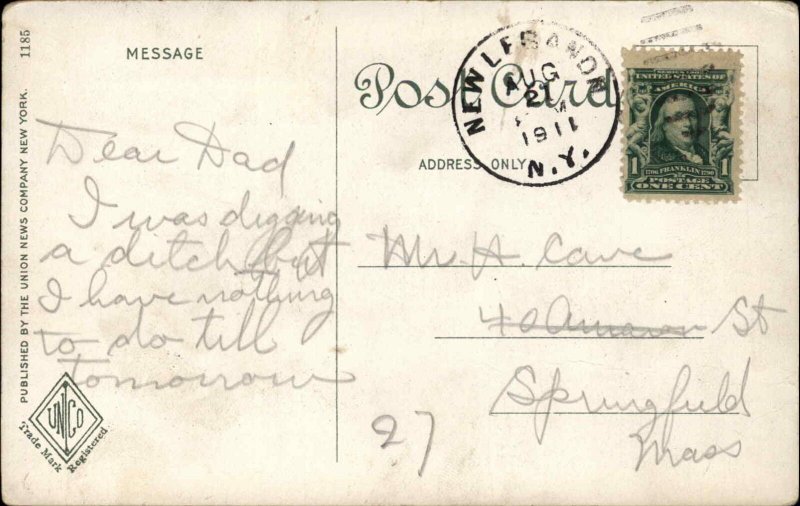 1185
PUBLISHED BY THE UNION NEWS COMPANY NEW YORK.
MESSAGE
Post Card
ADDRESS ONLY
NEW LEBANON
AUG
21
M
1911
N.Y.
SERIES 1902
UNITED STATES OF
AMERICA
1706 FRANKLIN 1790
1 POSTAGE 1
ONE CENT
Dear Dad
I was digging
a ditch but
I have nothing
to do till
tomorrow
UNCO
Trade Mark Registered
Mr. H. Cave
40 St
Springfield
Mass
27